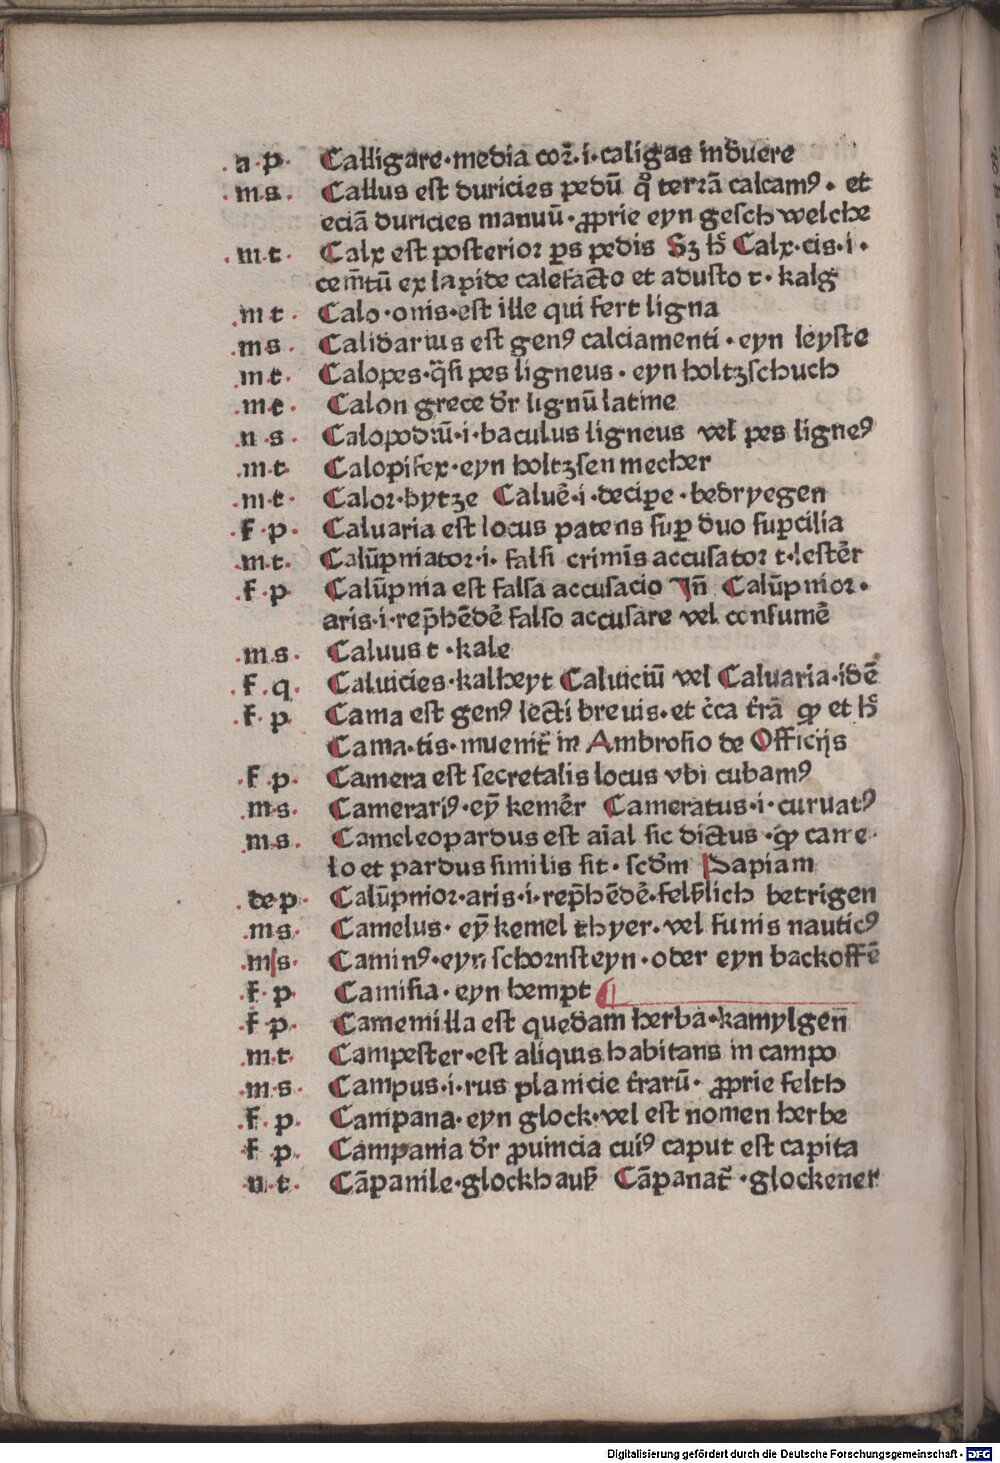 .a.p. Calligare·media cor̄·i·caligas induere
.m.s. Callus est duricies pedū qͦ terrā calcamꝰ· et
eciā duricies manuū·ꝓprie eyn geschwelche
.m.t. Calx est posterior ꝑs pedis Sꝫ hͨ Calx·cis·i·
cem̄tū ex lapide calefacto et adusto t·kalg
.m t. Calo·onis·est ille qui fert ligna
.m s. Calidarius est genꝰ calciamenti·eyn leyste
.m t. Calopes·q̄si pes ligneus·eyn holtzschuch
.m t. Calon grece dr̄ lignū latine
.n s. Calopodiū·i·baculus ligneus vel pes ligneꝰ
.m t. Calopifex·eyn holtzsen mecher
.m t. Calor·hytze Caluē·i·deciꝑe·bedryegen
.f·p. Caluaria est locus patens suꝑ duo suꝑcilia
.m.t. Calūpniator·i·falsi crimīs accusator t·lestēr
.f·p. Calūpnia est falsa accusacio Jn̄ Calūpnior·
aris·i·rep̄hēdē falso accusare vel consumē
.m s. Caluus t·kale
.f.q. Caluicies·kalheyt Caluiciū vel Caluaria·idē
.f·p. Cama est genꝰ lecti breuis·et c̄ca t̄rā ꝙ et hͨ
Cama·tis·inuenit̄ in Ambrosio de Officijs
.f p. Camera est secretalis locus vbi cubamꝰ
.m s. Camerariꝰ·eȳ kemēr Cameratus·i·curuatꝰ
.m s. Cameleopardus est aīal sic dictus·ꝙ came
lo et pardus similis sit·scdm Papiam
.de p. Calūpnior·aris·i·rep̄hēdē·felslich betrigen
.m s. Camelus·eȳ kemel thyer·vel funis nauticꝰ
.m s. Caminꝰ·eyn schornsteyn·oder eyn backoffē
.f·p. Camisia·eyn hempt
.f p. Camemilla est quedam herba·kamylgen̄
.m t. Campester·est aliquis habitans in campo
.m s. Campus·i·rus planicie t̄rarū·ꝓprie felth
.f·p. Campana·eyn glock·vel est nomen herbe
.f p. Campania dr̄ ꝓuincia cuiꝰ caput est capita
.n t. Cāpanile·glockhauß Cāpanat̄·glockener
Digitalisierung gefördert durch die Deutsche Forschungsgemeinschaft - DFG